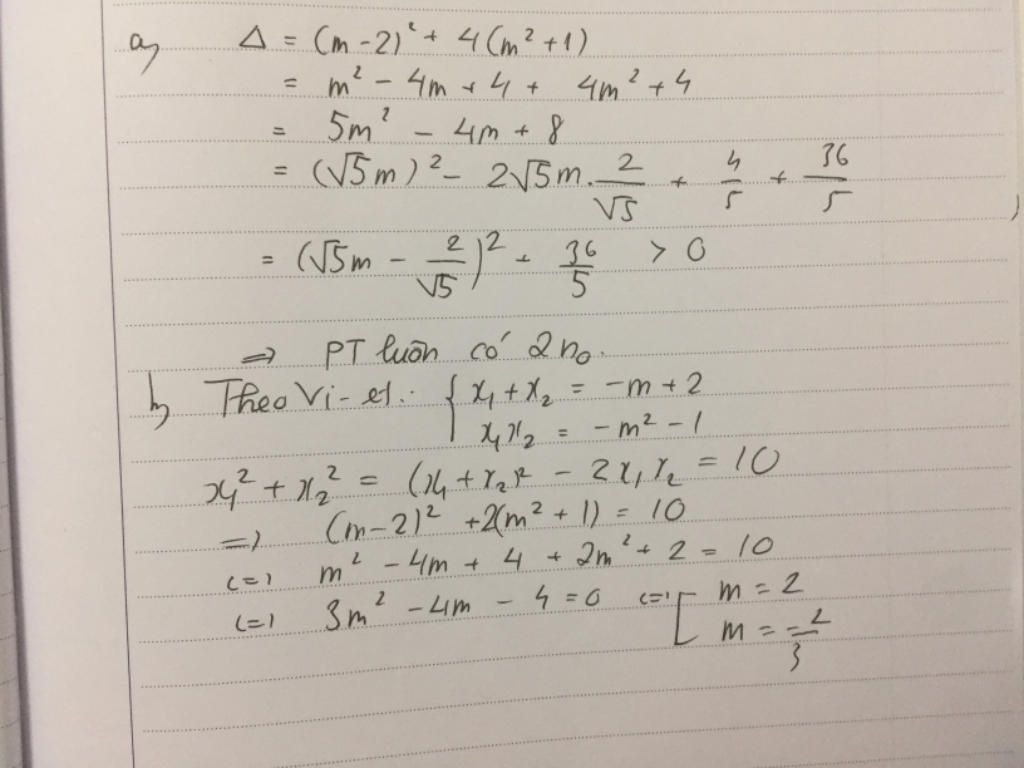 a) Δ = (m - 2)² + 4(m² + 1)
= m² - 4m + 4 + 4m² + 4
= 5m² - 4m + 8
= (√5m)² - 2√5m . 2/√5 + 4/5 + 36/5
= (√5m - 2/√5)² + 36/5 > 0
=> PT luôn có 2 no.
b) Theo Vi-et: { x₁ + x₂ = -m + 2
x₁x₂ = -m² - 1
x₁² + x₂² = (x₁ + x₂)² - 2x₁x₂ = 10
=> (m - 2)² + 2(m² + 1) = 10
<=> m² - 4m + 4 + 2m² + 2 = 10
<=> 3m² - 4m - 4 = 0 <=> [ m = 2
m = -2/3